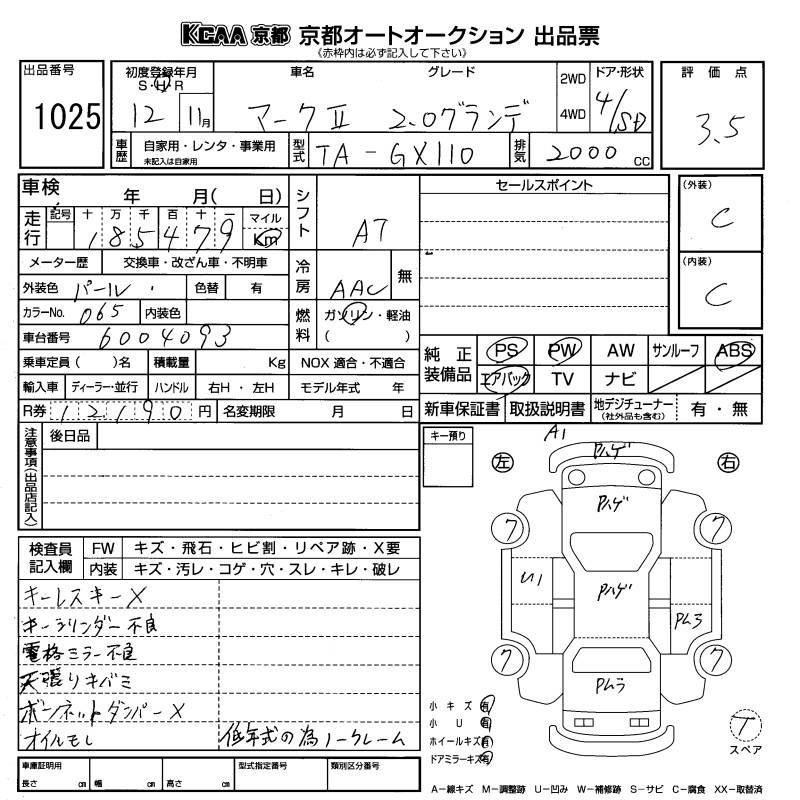 KCAA 京都 京都オートオークション 出品票
(赤枠内は必ず記入して下さい)
出品番号
1025
初度登録年月
S・H・R
12 11月
車名 グレード
マークⅡ 2.0グランデ
2WD
4WD
ドア・形状
4/SD
評価点
3.5
車歴
自家用・レンタ・事業用
未記入は自家用
型式
TA-GX110
排気
2000 cc
車検 年 月( 日)
走行
記号 十 万 千 百 十 一
185479
マイル
Km
シフト
AT
セールスポイント
(外装)
C
(内装)
C
メーター歴 交換車・改ざん車・不明車
冷房
AAC
無
外装色 パール 色替 有
カラーNo. 065 内装色
燃料
ガソリン・軽油
( )
車台番号 6004093
乗車定員( )名 積載量 Kg NOX 適合・不適合
輸入車 ディーラー・並行 ハンドル 右H・左H モデル年式 年
R券 12190円 名変期限 月 日
純正装備品
PS PW AW サンルーフ ABS
エアバック TV ナビ
新車保証書 取扱説明書 地デジチューナー
(社外品も含む) 有・無
注意事項(出品店記入)
後日品
キー預り
検査員記入欄
FW キズ・飛石・ヒビ割・リペア跡・X要
内装 キズ・汚レ・コゲ・穴・スレ・キレ・破レ
キーレスキーX
キーシリンダー不良
電格ミラー不良
天張りキバミ
ボンネットダンパーX
オイルモレ 低年式の為ノークレーム
左 右
A1
Pハゲ
Pハゲ
7 7
U1
Pハゲ
Pムラ
7 7
Pムラ
小キズ 有
小U 有
ホイールキズ 有
ドアミラーキズ 有
T
スペア
車庫証明用
長さ cm 幅 cm 高さ cm
型式指定番号 類別区分番号
A-線キズ M-調整跡 U-凹み W-補修跡 S-サビ C-腐食 XX-取替済